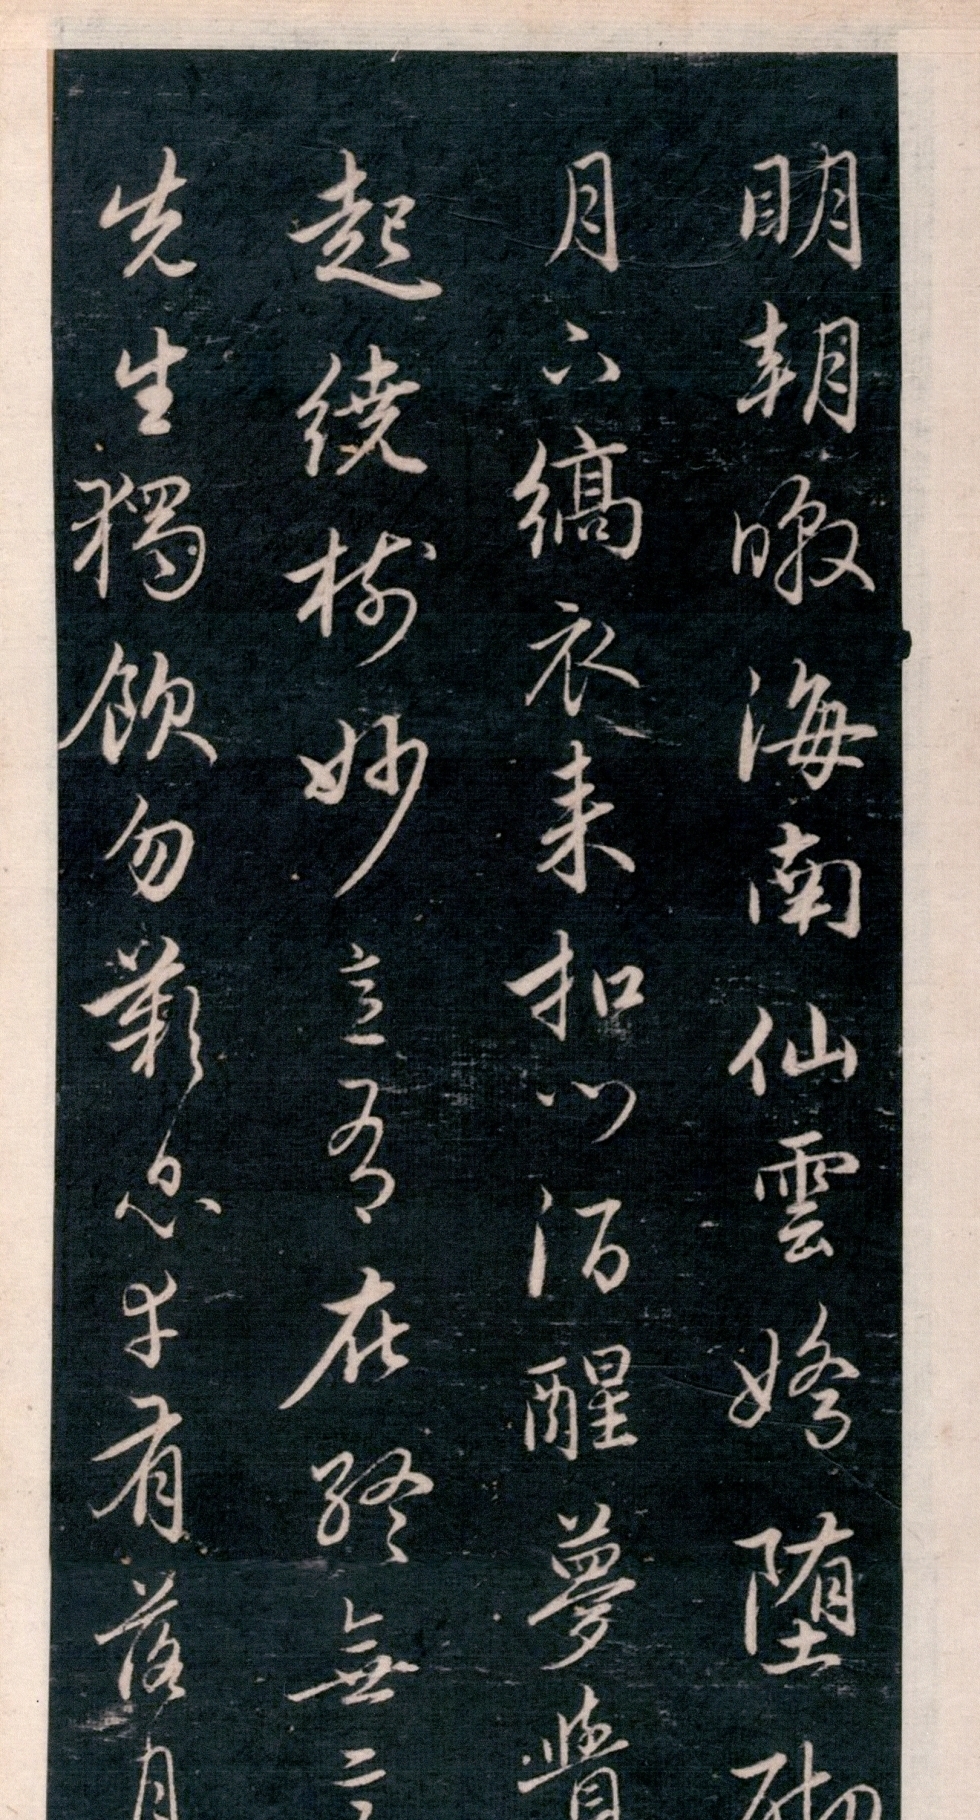 明朝暾海南仙雲嬌堕砌
月下縞衣来扣門酒醒夢覺
起繞樹妙意有在終無
先生獨飲勿歎息幸有落月